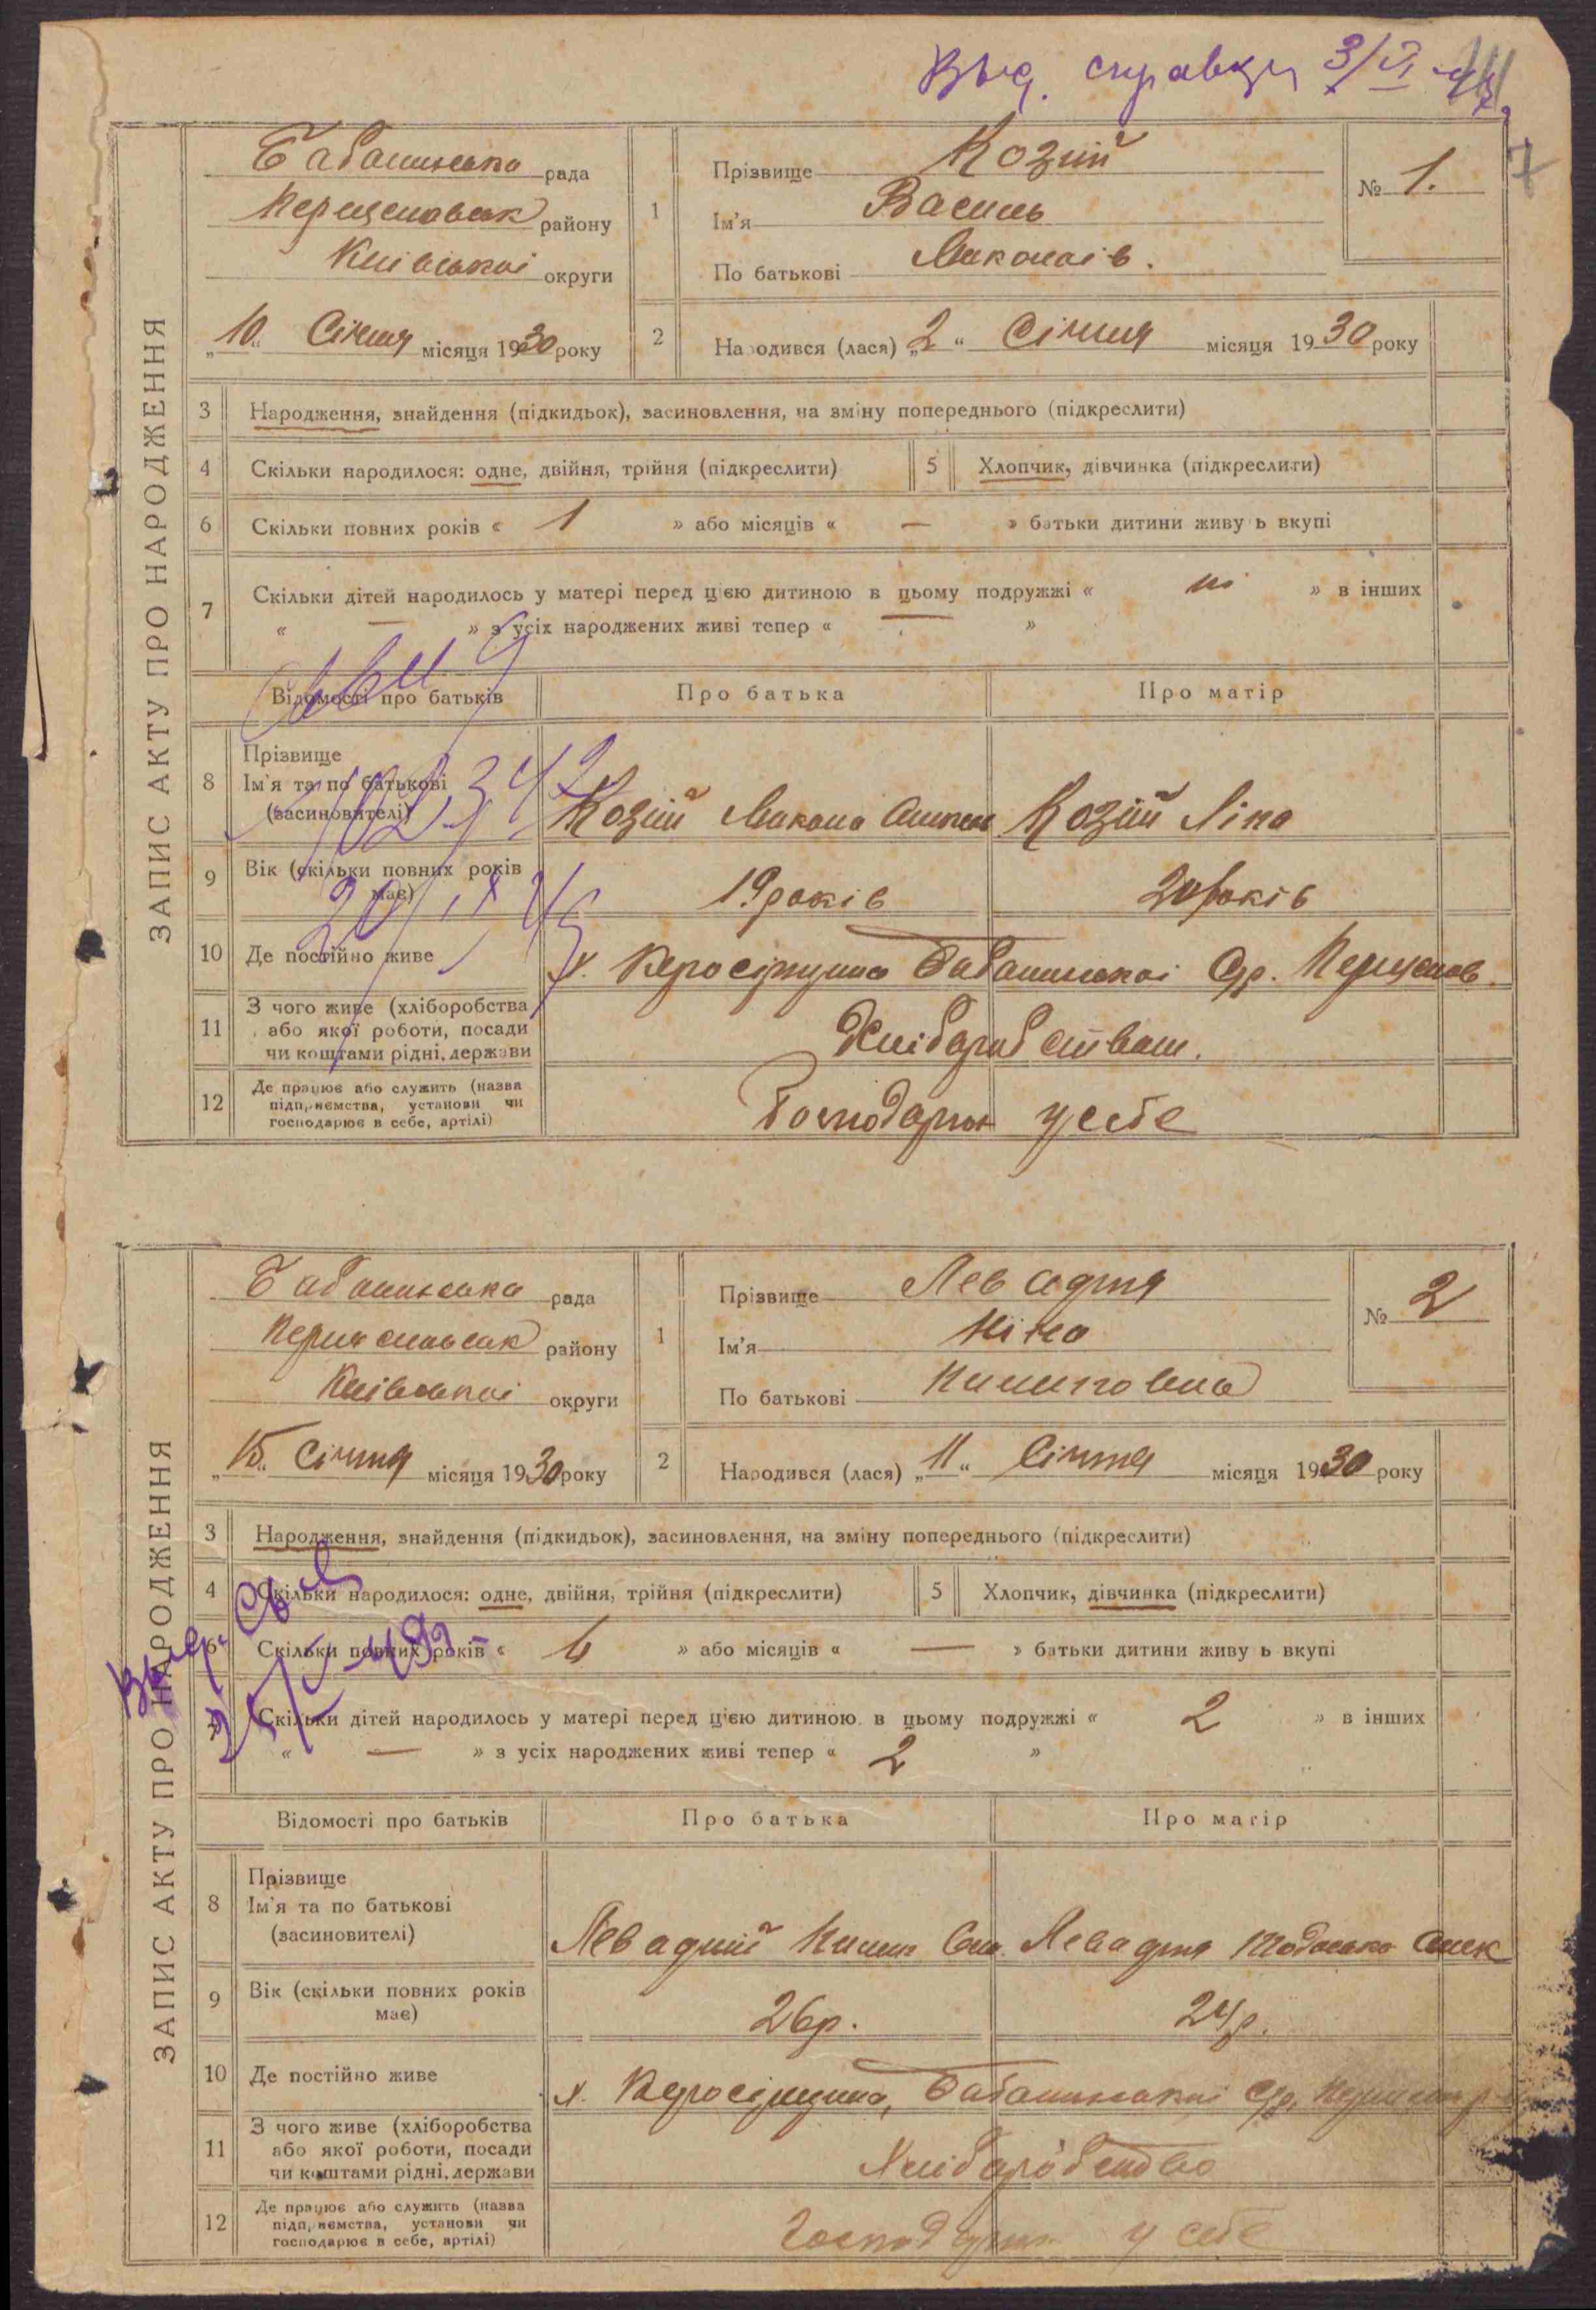 Выд. справку 3/VI
7
ЗАПИС АКТУ ПРО НАРОДЖЕННЯ
Бабачиська рада
району
Київської округи
„10“ Січня місяця 1930 року
1
Прізвище Козій
Ім'я Василь
По батькові Миколаїв.
№ 1.
2
Народився (лася) „2“ Січня місяця 1930 року
3 Народження, знайдення (підкидьок), засиновлення, на зміну попереднього (підкреслити)
4 Скільки народилося: одне, двійня, трійня (підкреслити)
5 Хлопчик, дівчинка (підкреслити)
6 Скільки повних років « 1 » або місяців « — » батьки дитини живуть вкупі
7 Скільки дітей народилось у матері перед цією дитиною в цьому подружжі « ні » в інших
« — » з усіх народжених живі тепер « — »
Відомості про батьків
Про батька
Про матір
8 Прізвище
Ім'я та по батькові
(засиновителі)
Козій Микола
Козій Ліна
9 Вік (скільки повних років
має)
19 років
20 років
10 Де постійно живе
х.
11 З чого живе (хліборобства
або якої роботи, посади
чи коштами рідні, держави
Хліборобством.
12 Де працює або служить (назва
підприємства, установи чи
господарює в себе, артілі)
у себе
ЗАПИС АКТУ ПРО НАРОДЖЕННЯ
Бабачиська рада
району
Київської округи
„15“ Січня місяця 1930 року
1
Прізвище Левадня
Ім'я Ніна
По батькові
№ 2
2
Народився (лася) „11“ Січня місяця 1930 року
3 Народження, знайдення (підкидьок), засиновлення, на зміну попереднього (підкреслити)
4 Скільки народилося: одне, двійня, трійня (підкреслити)
5 Хлопчик, дівчинка (підкреслити)
6 Скільки повних років « » або місяців « — » батьки дитини живуть вкупі
Выд.
7 Скільки дітей народилось у матері перед цією дитиною в цьому подружжі « 2 » в інших
« — » з усіх народжених живі тепер « 2 »
Відомості про батьків
Про батька
Про матір
8 Прізвище
Ім'я та по батькові
(засиновителі)
Левадний
Левадня
9 Вік (скільки повних років
має)
26 р.
24 р.
10 Де постійно живе
х.
11 З чого живе (хліборобства
або якої роботи, посади
чи коштами рідні, держави
Хліборобство
12 Де працює або служить (назва
підприємства, установи чи
господарює в себе, артілі)
у себе